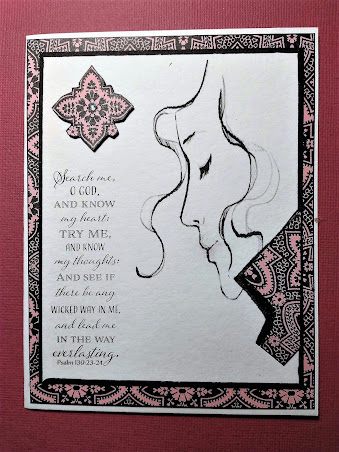 Search me,
O GOD,
AND KNOW
my heart:
TRY ME,
AND KNOW
my thoughts:
AND SEE IF
there be any
WICKED WAY IN ME,
and lead me
IN THE WAY
everlasting.
Psalm 139:23-24